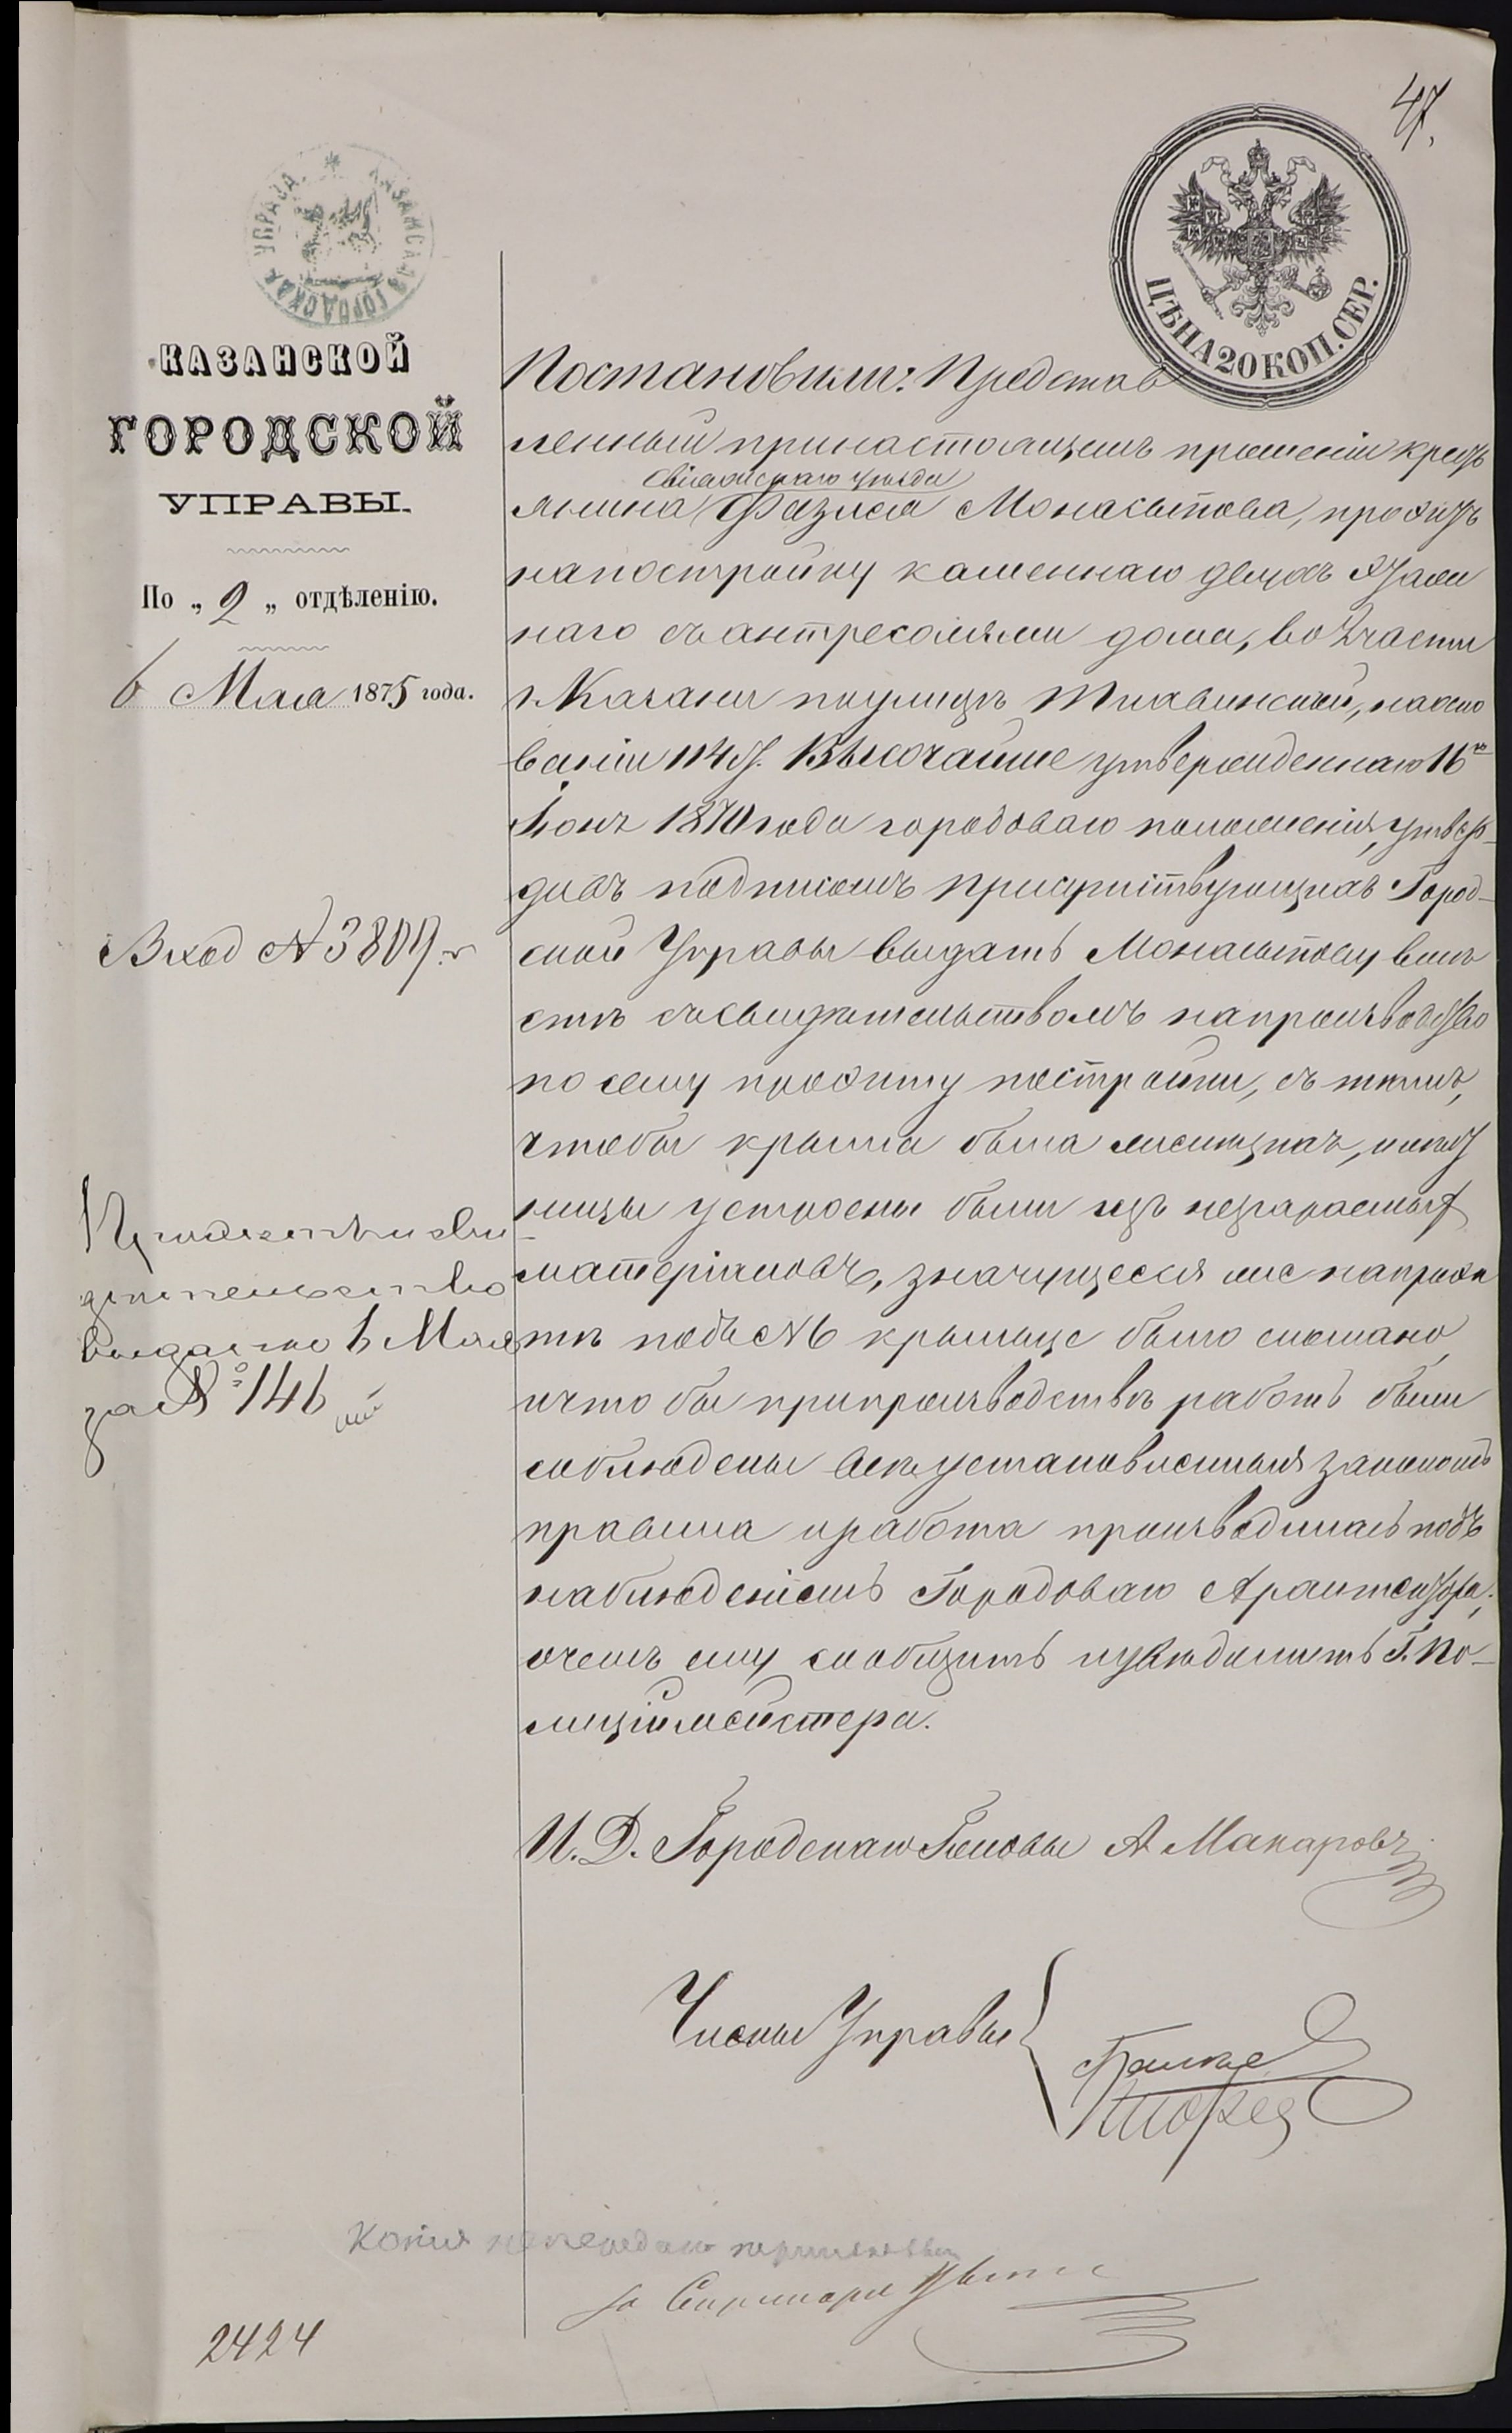 47.
КАЗАНСКАЯ ГОРОДСКАЯ УПРАВА.
ЦѢНА 20 КОП. СЕР.
КАЗАНСКОЙ
ГОРОДСКОЙ
УПРАВЫ.
По „ 2 „ отдѣленію.
6 Мая 1875 года.
Вход №3809.
свидѣтельство
выдано 6 Мая
за № 146
Постановили: Представ
ленный при настоящемъ прошеніи кресть
Свіяжскаго уѣзда
янина Фазула Монасыпова, проэктъ
на постройку каменнаго двухъ этаж
наго съ антресолями дома, во 2 части
г. Казани по улицѣ Тихвинской, на осно
ваніи 114 §. Высочайше утвержденнаго 16го
Іюня 1870 года городоваго положенія, утвер-
дивъ подписомъ присутствующихъ Город-
ской Управы выдать Монасыпову вмѣ
стѣ съ свидѣтельствомъ на производство
по сему проэкту постройки, съ тѣмъ,
чтобы крыша была
устроены были изъ несгараемыхъ
матеріаловъ, значущееся же на проэк
тѣ подъ №6 крыльцо было сломано
и что бы при производствѣ работъ были
соблюдены всѣ установленныя закономъ
правила и работа производилась подъ
наблюденіемъ Городоваго Архитектора,
о чемъ ему сообщить и увѣдомить Г. По-
лиціймейстера.
И. Д. Городскаго Головы А Макаровъ
Члены Управы
Копія
за Секретаря
2424